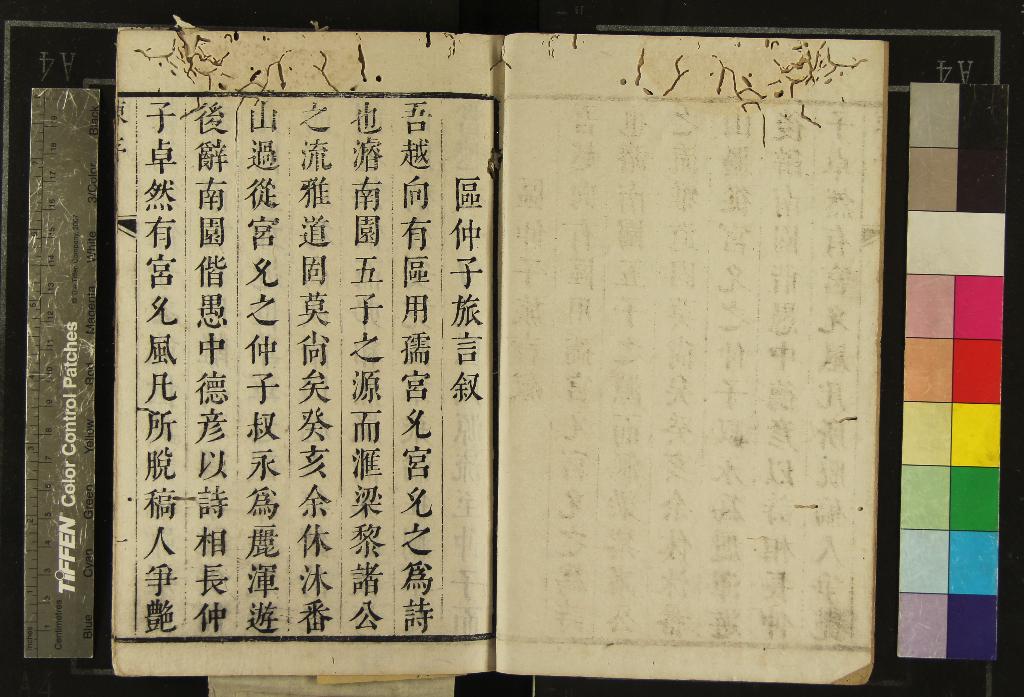 區仲子旅言叙
吾越向有區用孺宮允宮允之爲詩
也濬南園五子之源而滙梁黎諸公
之流雅道固莫尙矣癸亥余休沐番
山過從宮允之仲子叔永爲麗渾遊
後辭南園偕愚中德彦以詩相長仲
子卓然有宮允風凡所脫稿人爭艷
TIFFEN Color Control Patches
Blue Cyan Green Yellow Red Magenta White 3/Color Black
Inches
Centimetres
A4
A4